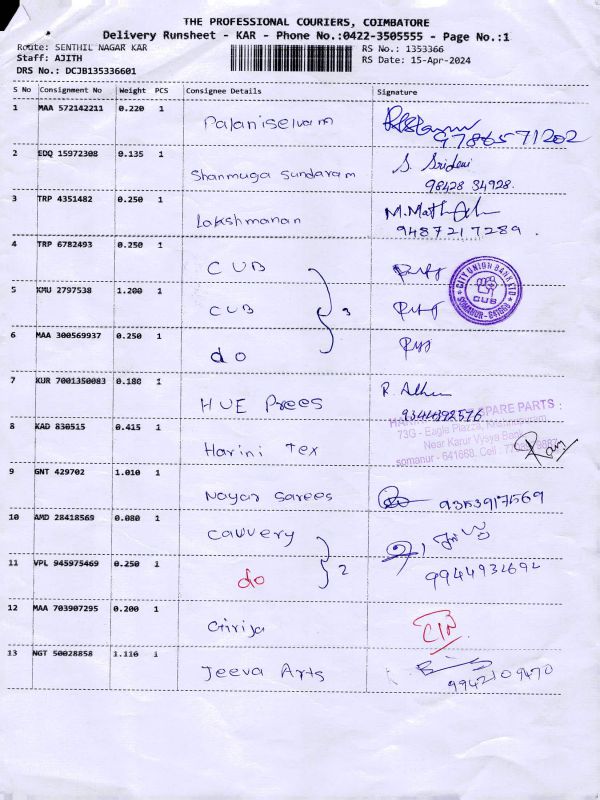 THE PROFESSIONAL COURIERS, COIMBATORE
Delivery Runsheet - KAR - Phone No.:0422-3505555 - Page No.:1
Route: SENTHIL NAGAR KAR RS No.: 1353366
Staff: AJITH RS Date: 15-Apr-2024
DRS No.: DCJB135336601
S No Consignment No Weight PCS Consignee Details Signature
1 MAA 572142211 0.220 1 Palaniselvam
9786571202
2 EDQ 15972308 0.135 1 Shanmuga Sundaram S. Sridevi
98428 34928.
3 TRP 4351482 0.250 1 Lakshmanan
9487217289.
4 TRP 6782493 0.250 1 CUB
CITY UNION BANK LTD
CUB
SOMANUR - 641668
5 KMU 2797538 1.200 1 CUB 3
6 MAA 300569937 0.250 1 do
7 KUR 7001350083 0.180 1 HUE Prees
9344392576
SPARE PARTS :
73G - Eagle Plazza,
Near Karur Vysya Bank
somanur - 641668. Cell :
8 KAD 830515 0.415 1 Harini Tex
9 GNT 429702 1.010 1 Nayar Sarees 9353917569
10 AMD 28418569 0.080 1 Cauvery
11 VPL 945975469 0.250 1 do 2
9944932692
12 MAA 703907295 0.200 1 Girija
13 NGT 50028858 1.110 1 Jeeva Arts
9942109470